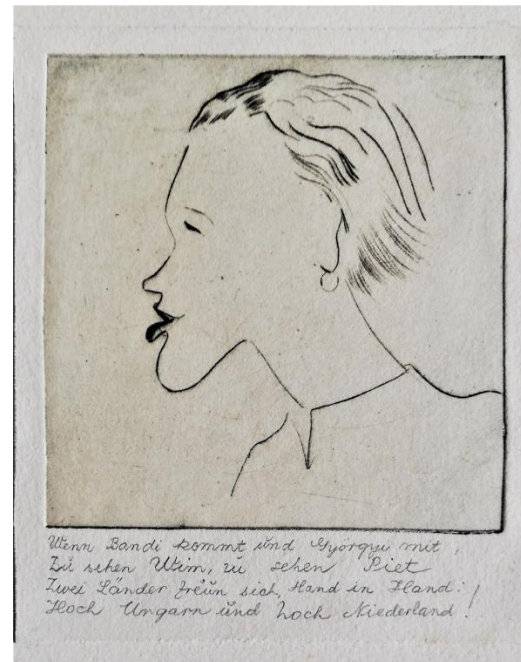 Wenn Bandi kommt und Györgyi mit,
Zu sehen Wim, zu sehen Piet
Zwei Länder freün sich, Hand in Hand:
Hoch Ungarn und hoch Niederland!